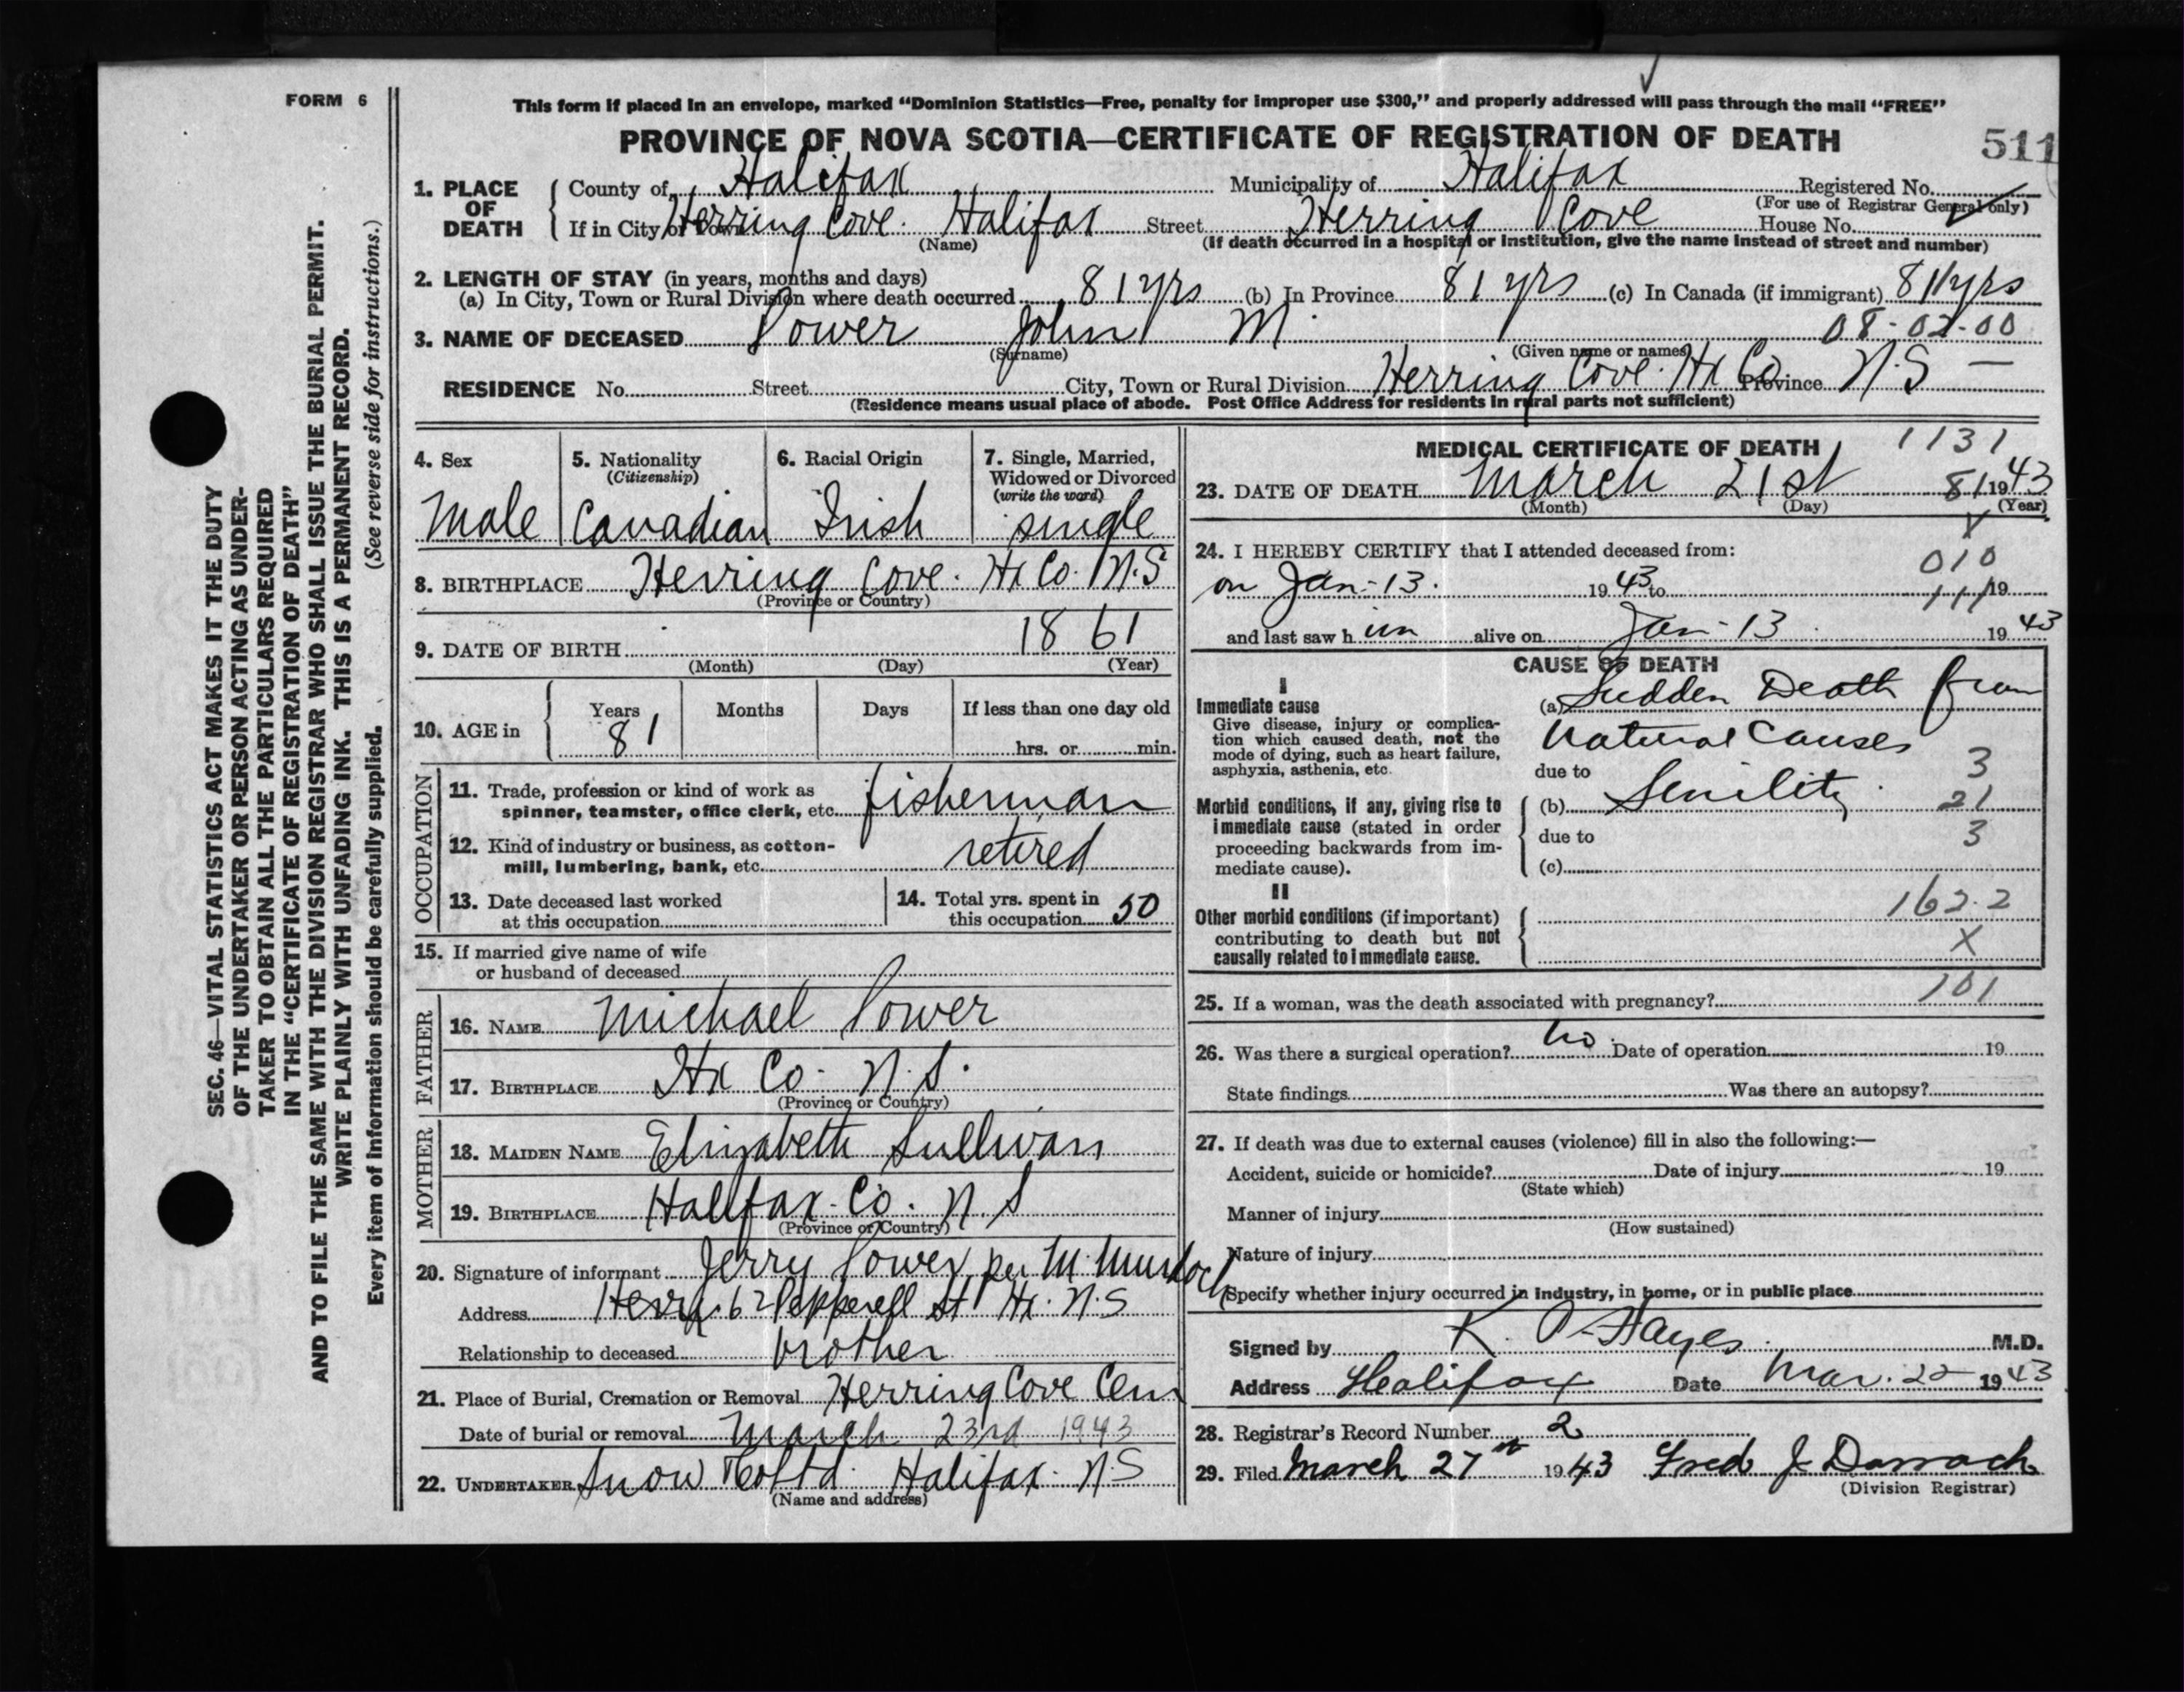 FORM 6
This form if placed in an envelope, marked “Dominion Statistics—Free, penalty for improper use $300,” and properly addressed will pass through the mail “FREE”
PROVINCE OF NOVA SCOTIA—CERTIFICATE OF REGISTRATION OF DEATH
511
1. PLACE OF DEATH
County of Halifax Municipality of Halifax Registered No.
(For use of Registrar General only)
If in City or Town Herring Cove. Halifax Street Herring Cove House No.
(Name) (If death occurred in a hospital or institution, give the name instead of street and number)
2. LENGTH OF STAY (in years, months and days)
(a) In City, Town or Rural Division where death occurred 81 yrs (b) In Province 81 yrs (c) In Canada (if immigrant) 81 yrs
08-02-00
3. NAME OF DECEASED Power John M.
(Surname) (Given name or names)
RESIDENCE No. Street City, Town or Rural Division Herring Cove. Hx Co Province N.S —
(Residence means usual place of abode. Post Office Address for residents in rural parts not sufficient)
4. Sex Male
5. Nationality (Citizenship) Canadian
6. Racial Origin Irish
7. Single, Married, Widowed or Divorced (write the word) single
8. BIRTHPLACE Herring Cove. Hx Co. N.S
(Province or Country)
9. DATE OF BIRTH 1861
(Month) (Day) (Year)
10. AGE in Years 81 Months Days If less than one day old
hrs. or min.
OCCUPATION
11. Trade, profession or kind of work as
spinner, teamster, office clerk, etc. fisherman
12. Kind of industry or business, as cotton-
mill, lumbering, bank, etc. retired
13. Date deceased last worked
at this occupation
14. Total yrs. spent in
this occupation 50
15. If married give name of wife
or husband of deceased
FATHER
16. NAME Michael Power
17. BIRTHPLACE Hx Co. N.S.
(Province or Country)
MOTHER
18. MAIDEN NAME Elizabeth Sullivan
19. BIRTHPLACE Halifax Co. N.S
(Province or Country)
20. Signature of informant Jerry Power per M. Murdoch
Address 62 Pepperell St Hx. N.S
Relationship to deceased brother
21. Place of Burial, Cremation or Removal Herring Cove Cem
Date of burial or removal March 23rd 1943
22. UNDERTAKER Snow & Co Ltd. Halifax. N.S
(Name and address)
MEDICAL CERTIFICATE OF DEATH
1131
23. DATE OF DEATH March 21st 81 1943
(Month) (Day) (Year)
X
24. I HEREBY CERTIFY that I attended deceased from:
010
on Jan-13. 1943 to 111 19
and last saw him alive on Jan-13 1943
CAUSE OF DEATH
I
Immediate cause
Give disease, injury or complica-
tion which caused death, not the
mode of dying, such as heart failure,
asphyxia, asthenia, etc.
(a) Sudden Death from
Natural Causes
3
due to
Morbid conditions, if any, giving rise to
immediate cause (stated in order
proceeding backwards from im-
mediate cause).
(b) Senility. 21
due to 3
(c)
II
Other morbid conditions (if important)
contributing to death but not
causally related to immediate cause.
162.2
X
25. If a woman, was the death associated with pregnancy? 101
26. Was there a surgical operation? No. Date of operation 19
State findings Was there an autopsy?
27. If death was due to external causes (violence) fill in also the following:—
Accident, suicide or homicide? Date of injury 19
(State which)
Manner of injury
(How sustained)
Nature of injury
Specify whether injury occurred in industry, in home, or in public place
Signed by K. P. Hayes. M.D.
Address Halifax Date Mar. 22 1943
28. Registrar’s Record Number 2
29. Filed March 27th 1943 Fred J Darrach
(Division Registrar)
SEC. 46—VITAL STATISTICS ACT MAKES IT THE DUTY
OF THE UNDERTAKER OR PERSON ACTING AS UNDER-
TAKER TO OBTAIN ALL THE PARTICULARS REQUIRED
IN THE “CERTIFICATE OF REGISTRATION OF DEATH”
AND TO FILE THE SAME WITH THE DIVISION REGISTRAR WHO SHALL ISSUE THE BURIAL PERMIT.
WRITE PLAINLY WITH UNFADING INK. THIS IS A PERMANENT RECORD.
Every item of information should be carefully supplied. (See reverse side for instructions.)